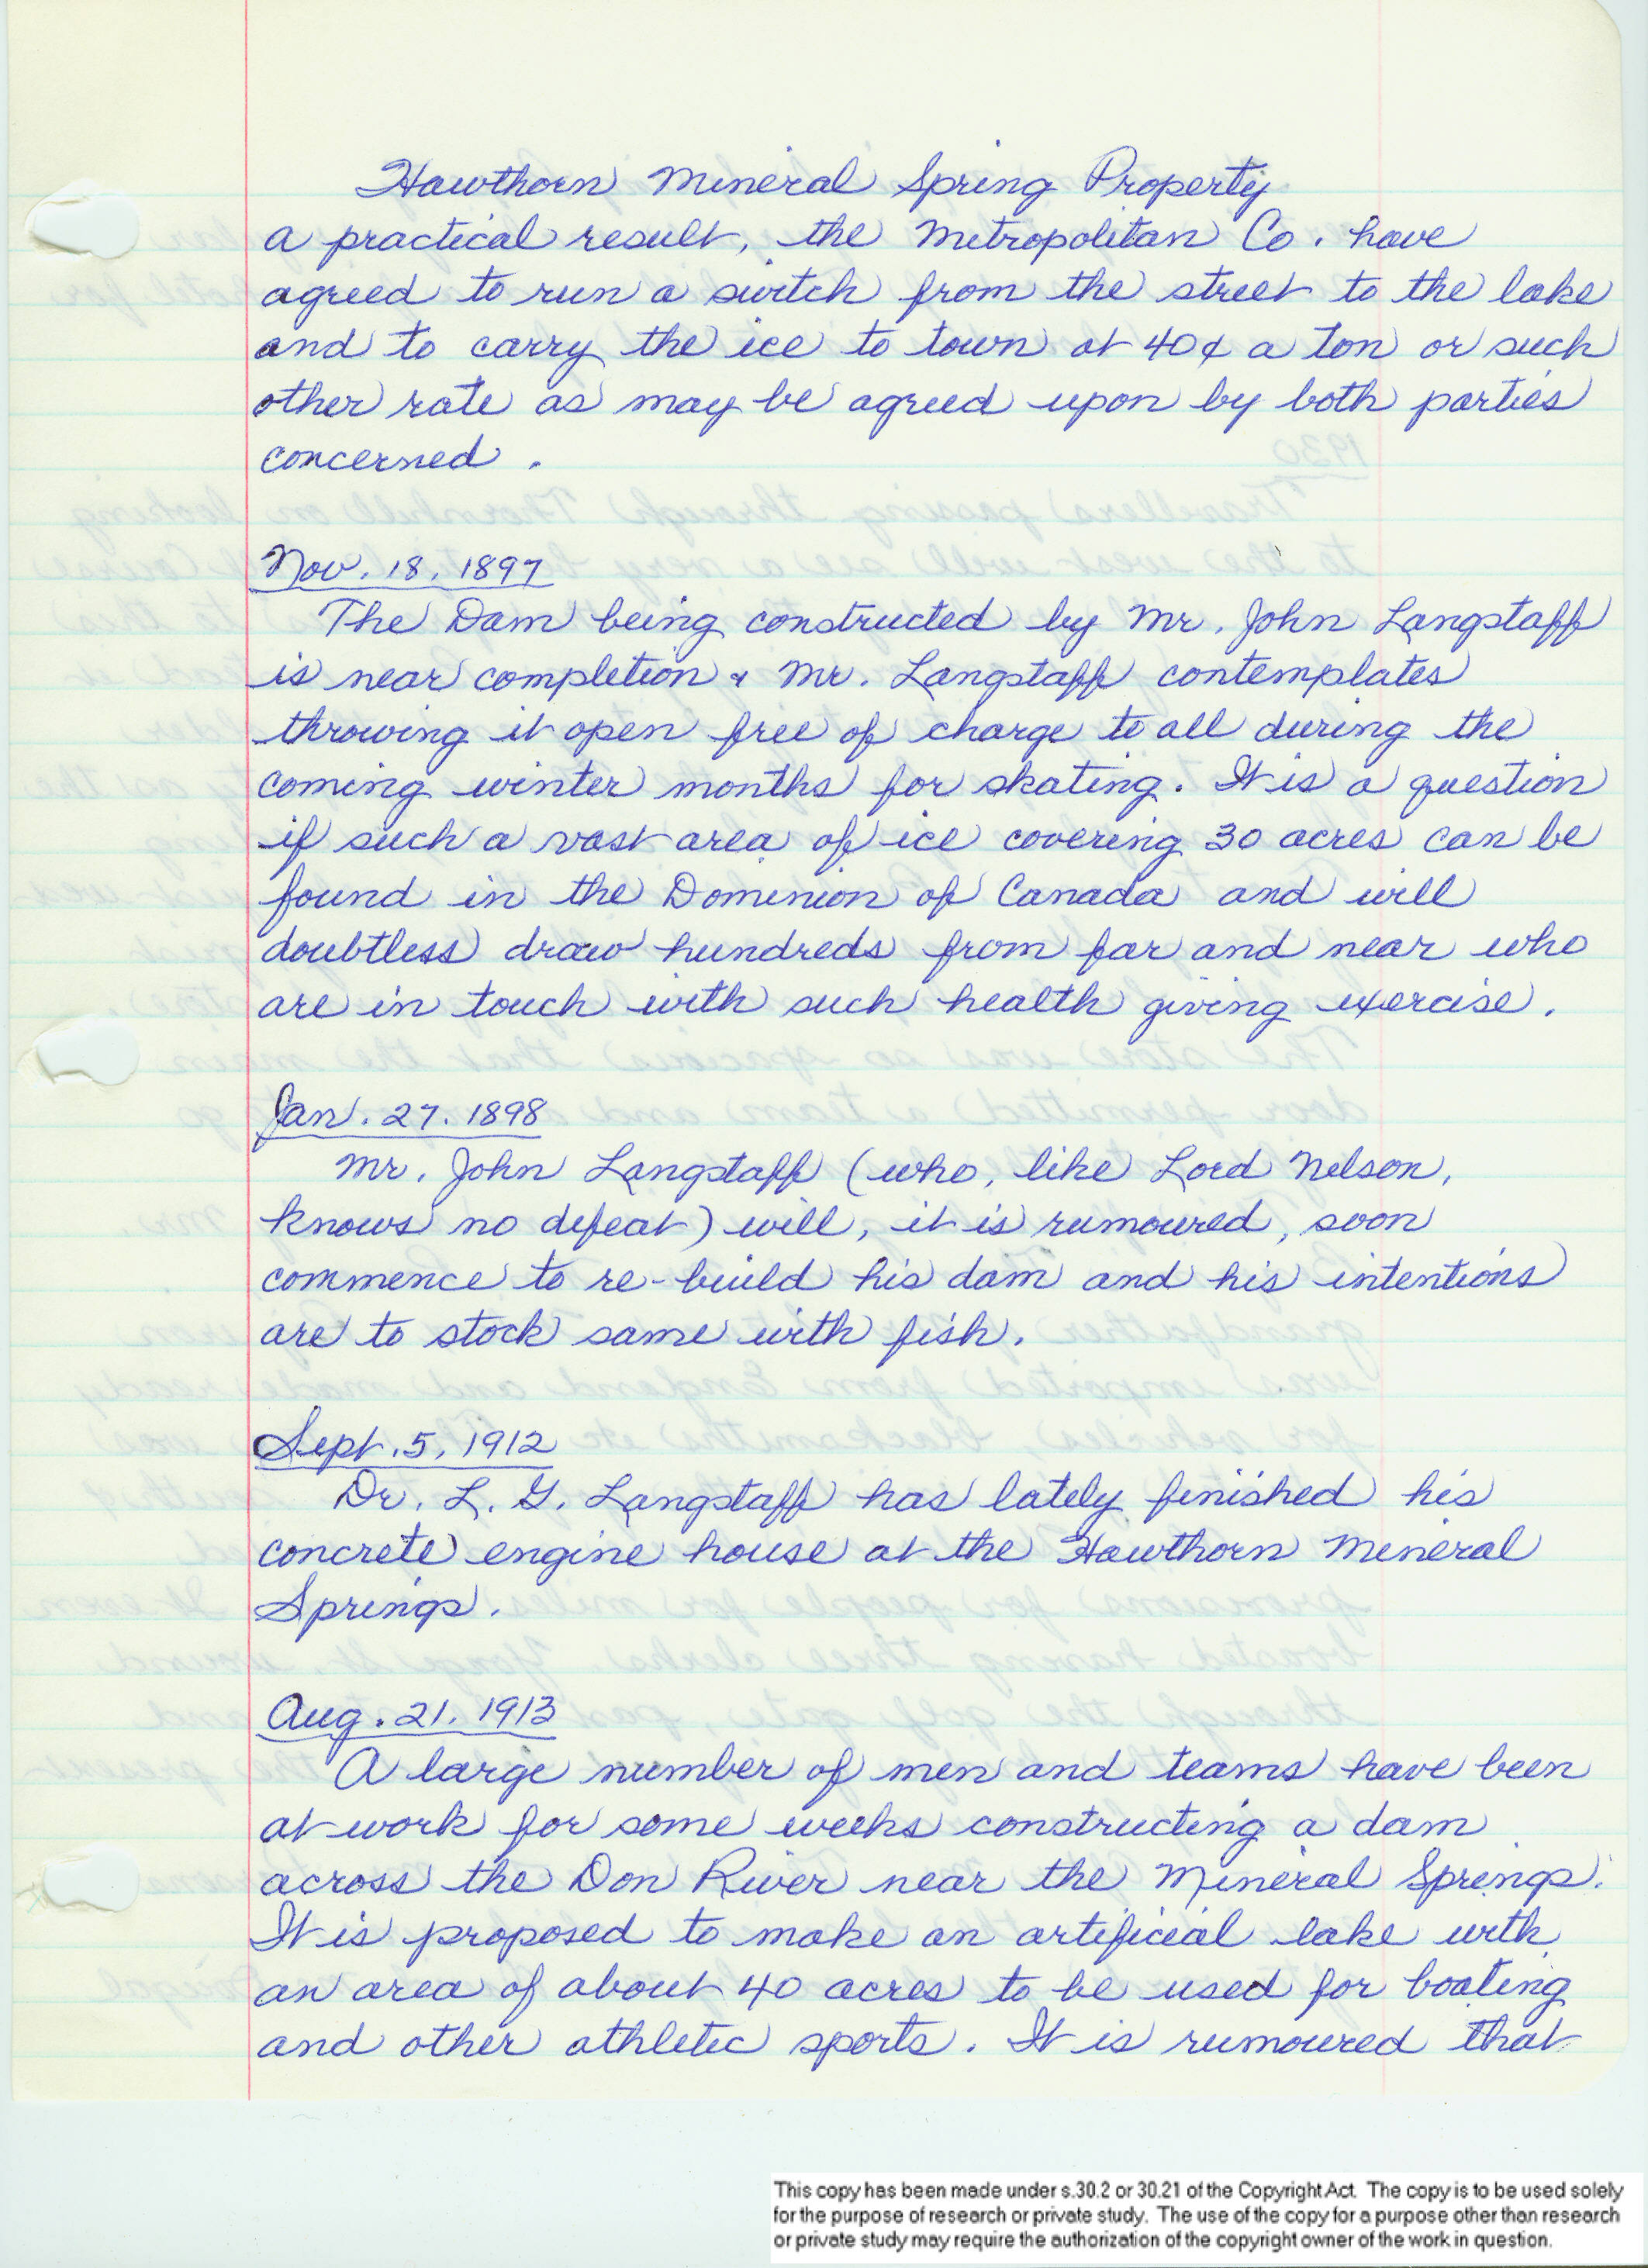 Hawthorn Mineral Spring Property
a practical result, the Metropolitan Co. have
agreed to run a switch from the street to the lake
and to carry the ice to town at 40¢ a ton or such
other rate as may be agreed upon by both parties
concerned.
Nov. 18, 1897
The Dam being constructed by Mr. John Langstaff
is near completion & Mr. Langstaff contemplates
throwing it open free of charge to all during the
coming winter months for skating. It is a question
if such a vast area of ice covering 30 acres can be
found in the Dominion of Canada and will
doubtless draw hundreds from far and near who
are in touch with such health giving exercise.
Jan. 27. 1898
Mr. John Langstaff (who, like Lord Nelson,
knows no defeat) will, it is rumoured, soon
commence to re-build his dam and his intentions
are to stock same with fish.
Sept. 5, 1912
Dr. L. G. Langstaff has lately finished his
concrete engine house at the Hawthorn Mineral
Springs.
Aug. 21. 1913
A large number of men and teams have been
at work for some weeks constructing a dam
across the Don River near the Mineral Springs.
It is proposed to make an artificial lake with
an area of about 40 acres to be used for boating
and other athletic sports. It is rumoured that
This copy has been made under s.30.2 or 30.21 of the Copyright Act. The copy is to be used solely
for the purpose of research or private study. The use of the copy for a purpose other than research
or private study may require the authorization of the copyright owner of the work in question.